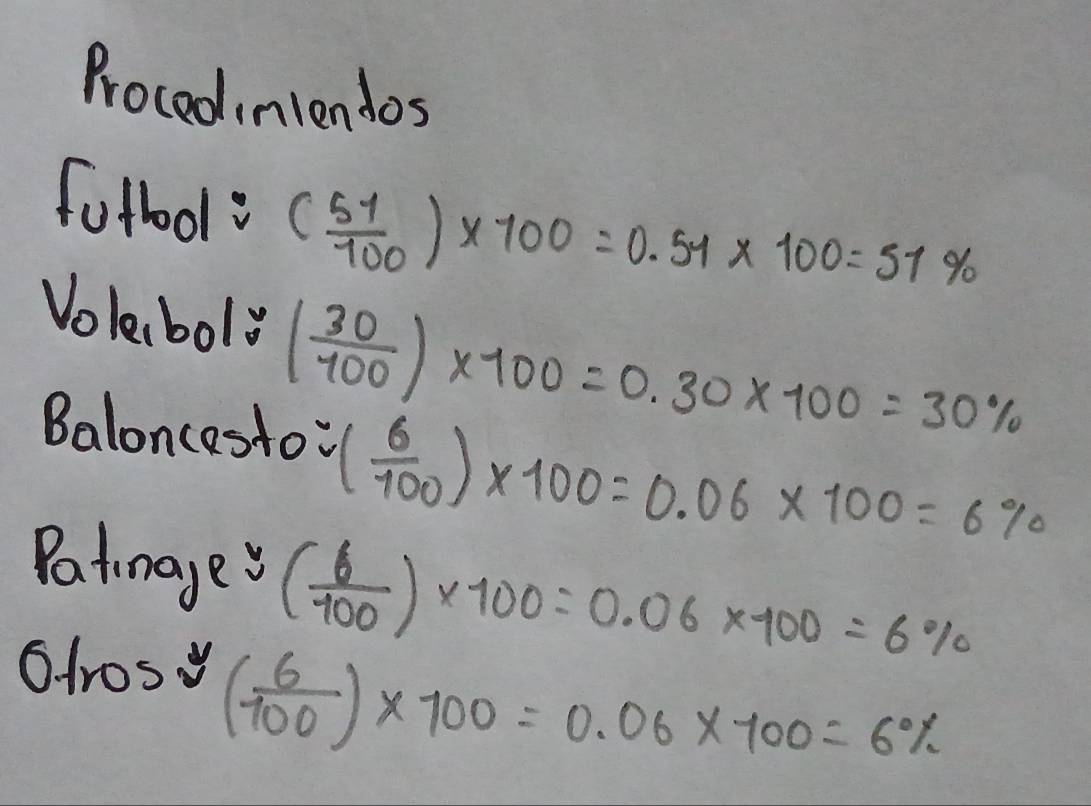 Procedimientos
Futbol: (51/100) x 100 = 0.51 x 100 = 51 %
Voleibol: (30/100) x 100 = 0.30 x 100 = 30%
Baloncesto: (6/100) x 100 = 0.06 x 100 = 6%
Patinaje: (6/100) x 100 = 0.06 x 100 = 6%
Otros: (6/100) x 100 = 0.06 x 100 = 6%